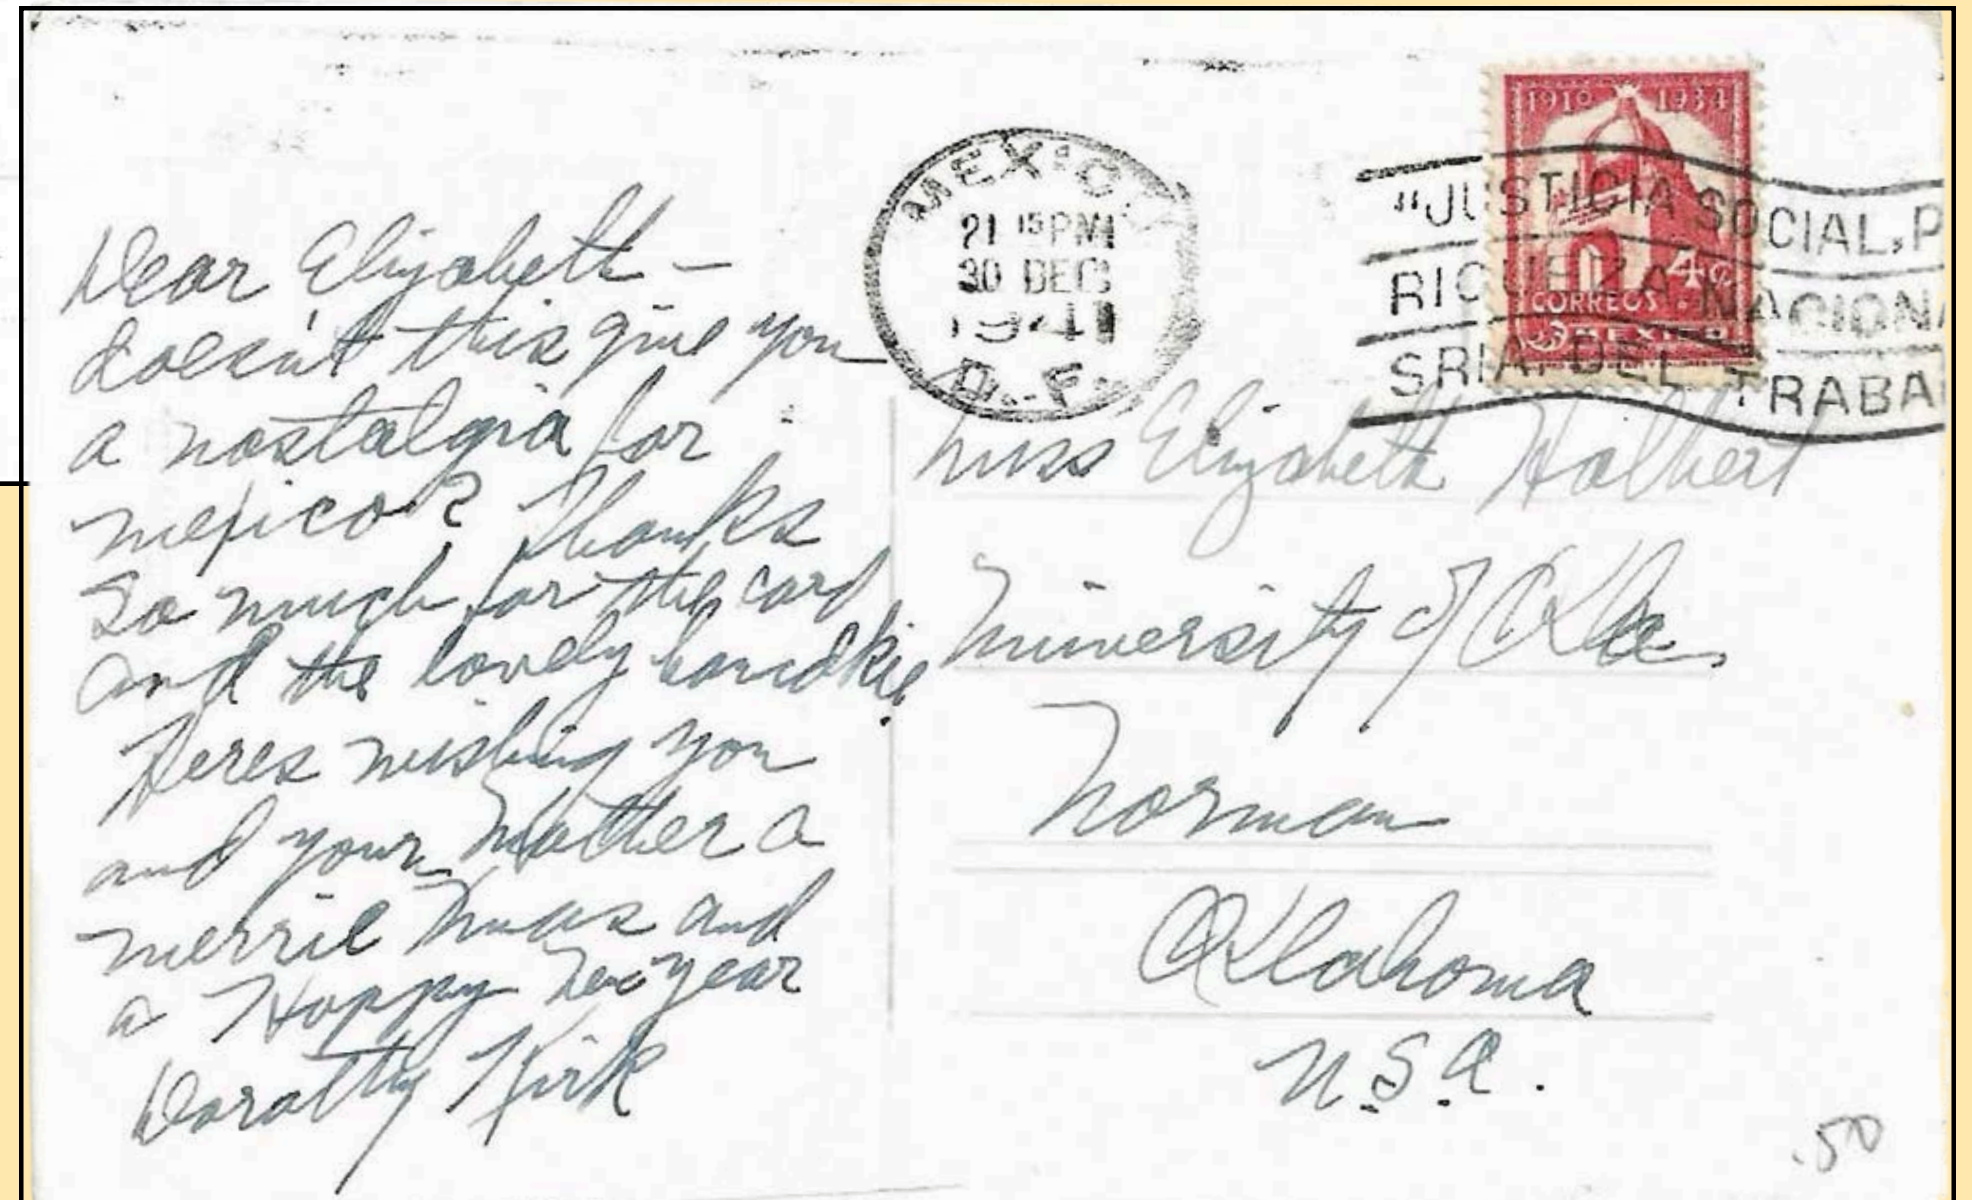 Dear Elizabeth —
doesn't this give you
a nostalgia for
mexico? Thanks
So much for the card
and the lovely handkie.
Heres wishing you
and your Mother a
merrie Xmas and
a Happy New year
Dorothy Kirk
MEXICO
21 15 PM
30 DEC
1941
D. F.
1910 1934
4c
CORREOS
MEXICO
"JUSTICIA SOCIAL, P
RIQUEZA NACIONA
SRIA. DEL TRABA
Miss Elizabeth Halbert
University of Okla.
Norman
Oklahoma
U.S.A.
.50